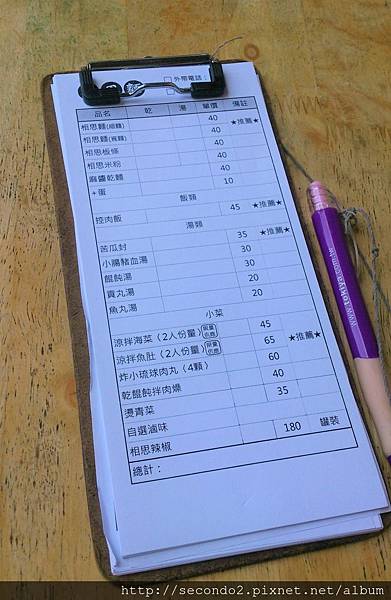 □外帶電話:
品名 乾 湯 單價 備註
相思麵(細麵) 40 ★推薦★
相思麵(寬麵) 40
相思板條 40
相思米粉 40
麻醬乾麵 40
+蛋 10
飯類
控肉飯 45 ★推薦★
湯類
苦瓜封 35 ★推薦★
小腸豬血湯 30
餛飩湯 30
貢丸湯 20
魚丸湯 20
小菜
涼拌海菜(2人份量) 限量供應 45
涼拌魚肚(2人份量) 限量供應 65 ★推薦★
炸小琉球肉丸(4顆) 60
乾餛飩拌肉燥 40
燙青菜 35
自選滷味
相思辣椒 180 罐裝
總計:
www.tokiya.com.tw
http://secondo2.pixnet.net/album